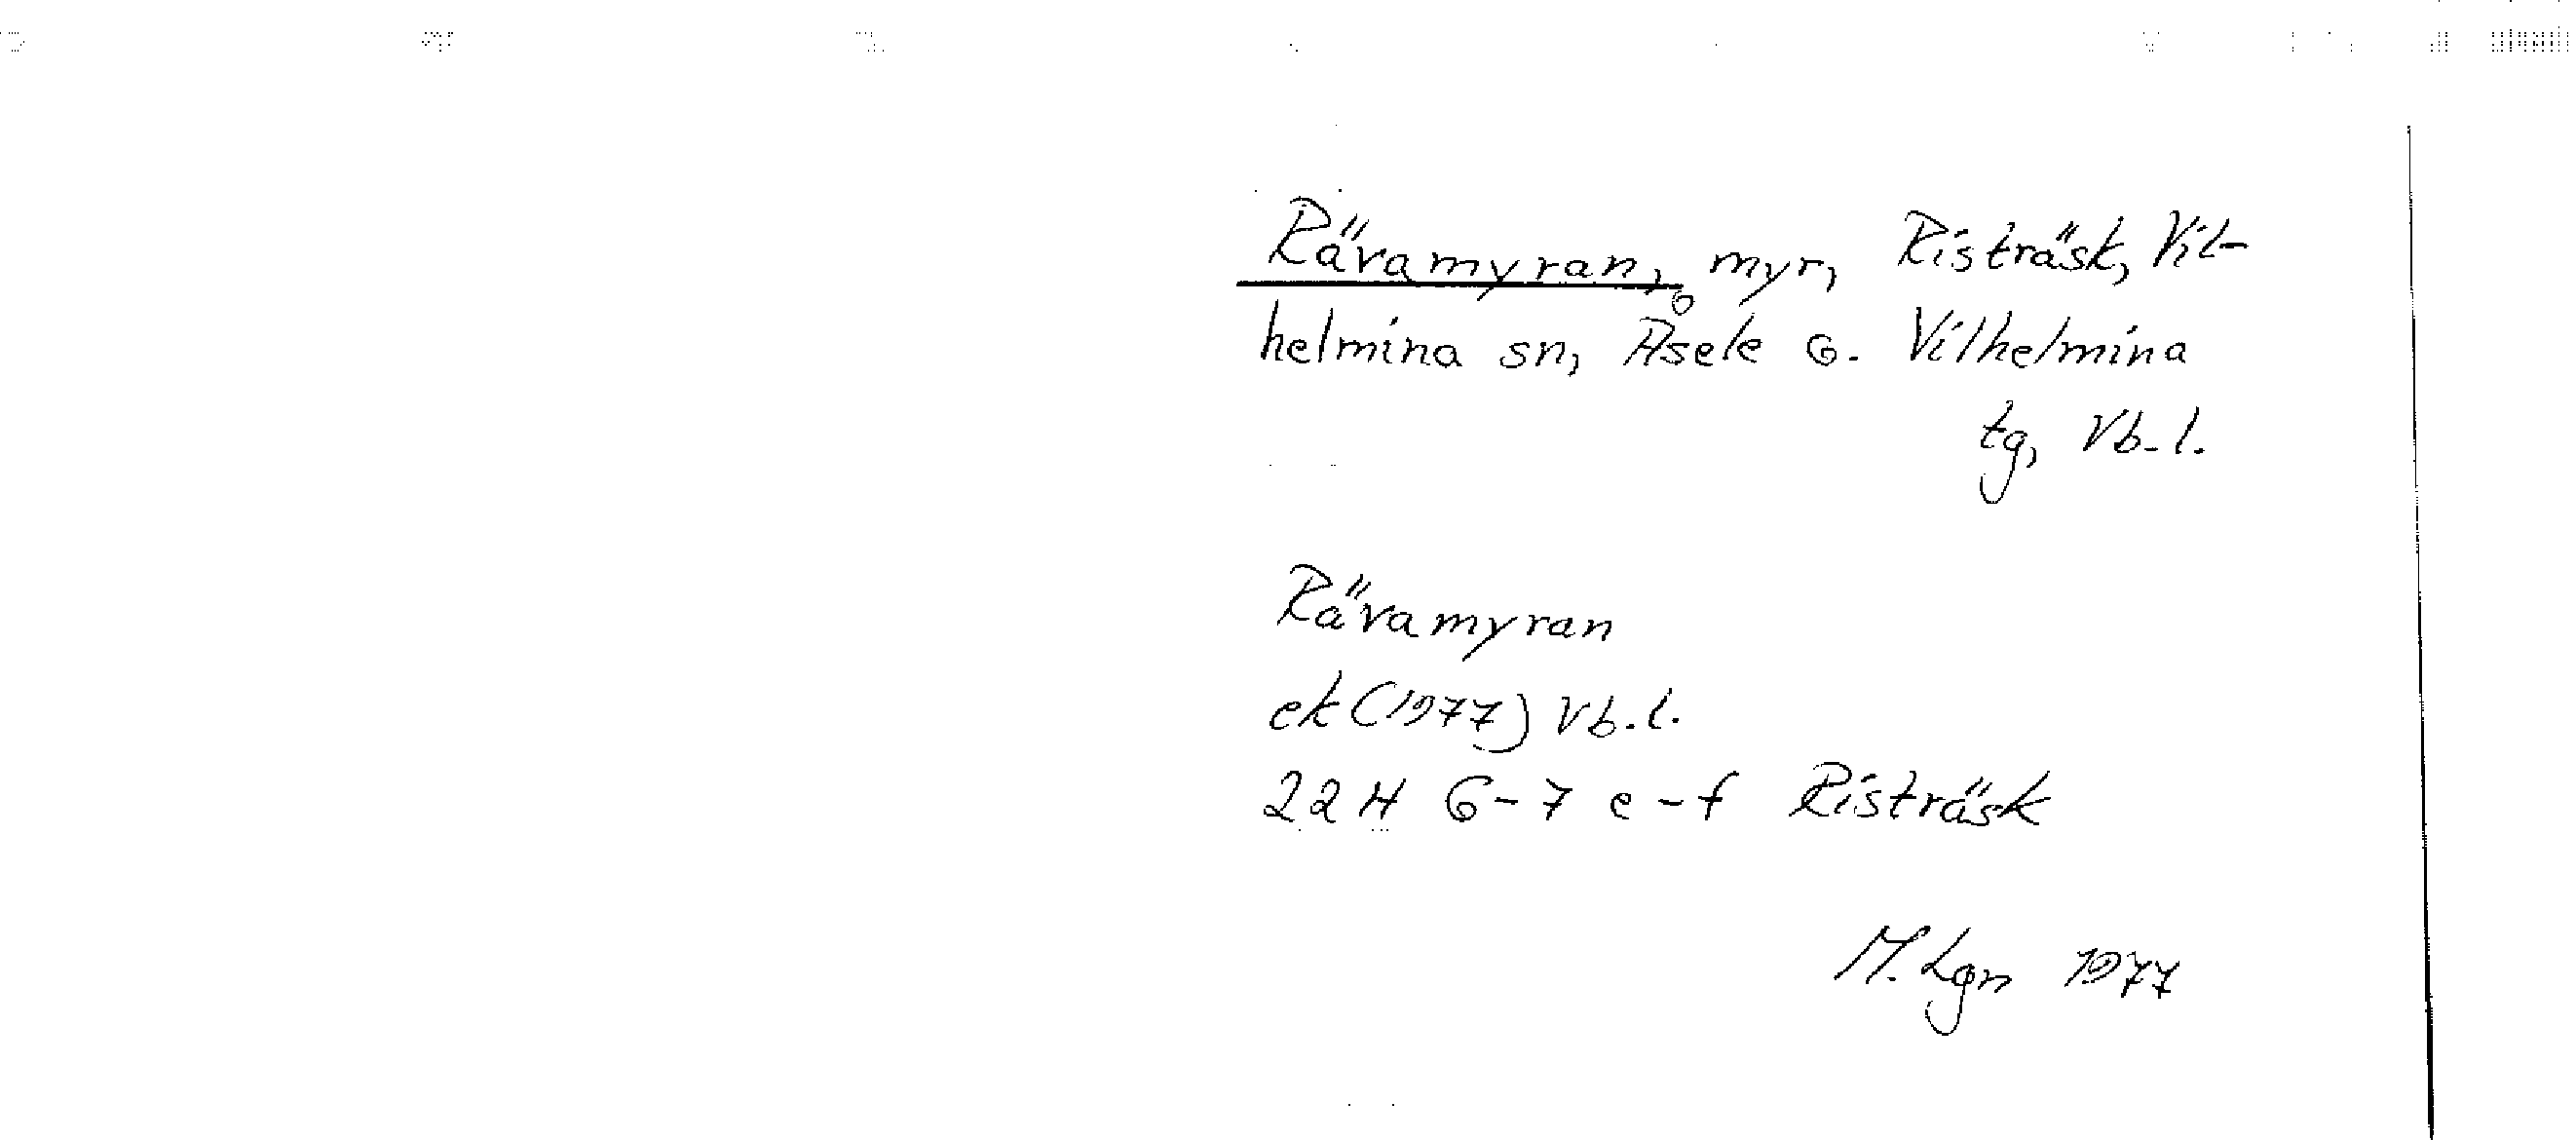 Rävamyran, myr, Risträsk, Vil-
helmina sn, Åsele o. Vilhelmina
tg, Vb. l.
Rävamyran
ek (1977) Vb. l.
22 H 6-7 e-f Risträsk
M. Lgn 1977